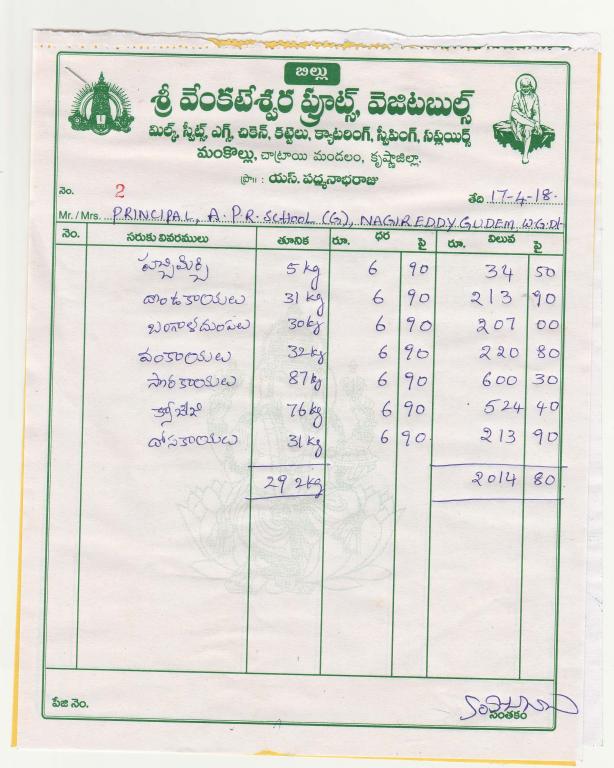 బిల్లు
శ్రీ వేంకటేశ్వర ఫ్రూట్స్, వెజిటబుల్స్
మిల్క్, స్వీట్స్, ఎగ్స్, చికెన్, కట్టెలు, క్యాటరింగ్, స్వీపింగ్, సప్లయర్స్
మంకొల్లు, చాట్రాయి మండలం, కృష్ణాజిల్లా.
ప్రొ॥ : యస్. పద్మనాభరాజు
నెం. 2 తేది 17-4-18.
Mr. / Mrs. PRINCIPAL, A.P.R. SCHOOL (G), NAGIREDDYGUDEM W.G.Dt
నెం. సరుకు వివరములు తూనిక రూ. ధర పై రూ. విలువ పై
పచ్చిమిర్చి 5 kg 6 90 34 50
దొండకాయలు 31 kg 6 90 213 90
బంగాళదుంపలు 30 kg 6 90 207 00
వంకాయలు 32 kg 6 90 220 80
సొరకాయలు 87 kg 6 90 600 30
క్యాబేజి 76 kg 6 90 524 40
దోసకాయలు 31 kg 6 90 213 90
292 kg 2014 80
పేజి నెం.
సంతకం